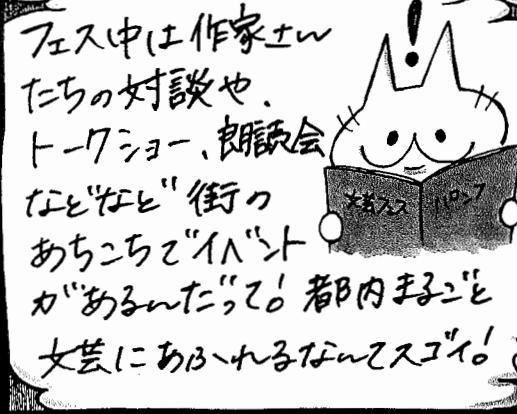 フェス中は作家さん
たちの対談や、
トークショー、朗読会
などなど街の
あちこちでイベント
があるんだって!都内まるごと
文芸にあふれるなんてスゴイ!
!
文芸フェス パンフ